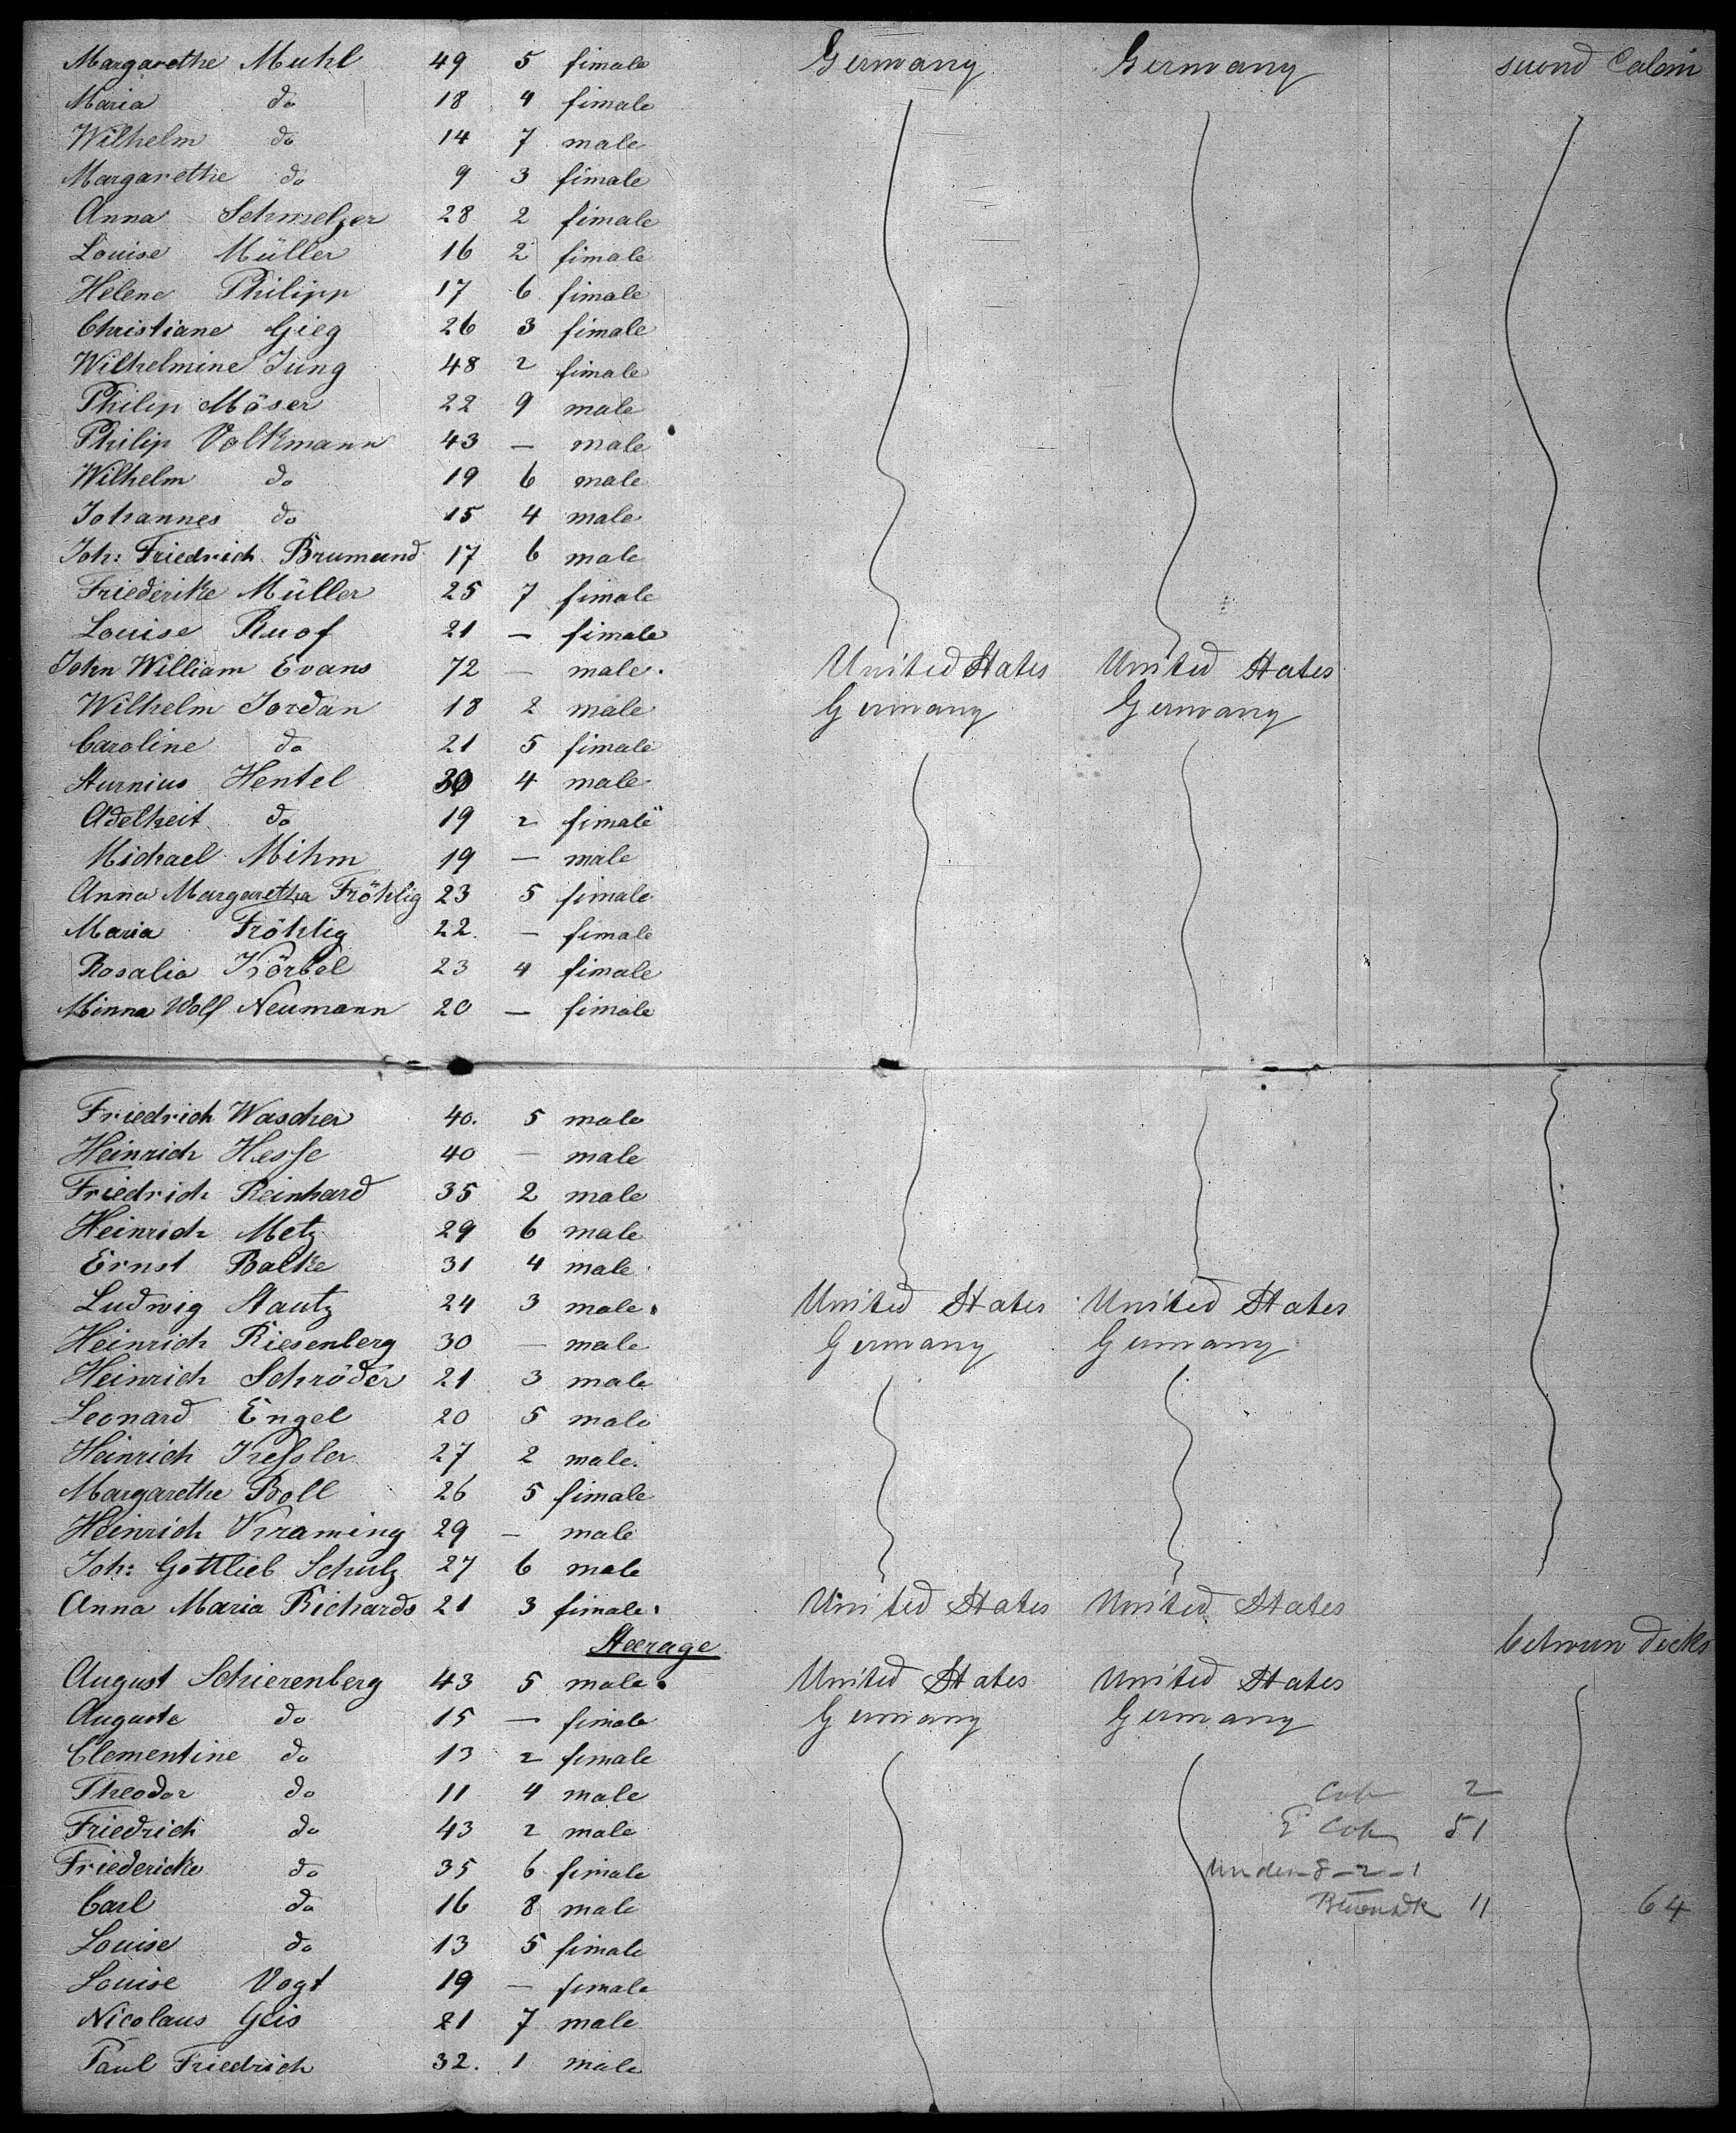 Margarethe Muhl 49 5 fimale Germany Germany second Cabin
Maria do 18 4 fimale
Wilhelm do 14 7 male
Margarethe do 9 3 fimale
Anna Schmelzer 28 2 fimale
Louise Müller 16 2 fimale
Helene Philipp 17 6 fimale
Christiane Gieg 26 3 fimale
Wilhelmine Jung 48 2 fimale
Philip Möser 22 9 male
Philip Volkmann 43 — male
Wilhelm do 19 6 male
Johannes do 15 4 male
Joh: Friedrich Brumund 17 6 male
Friederike Müller 25 7 fimale
Louise Ruof 21 — fimale
John William Evans 72 — male. United States United States
Wilhelm Jordan 18 2 male Germany Germany
Caroline do 21 5 fimale
Sturnius Hentel 30 4 male
Adelheit do 19 2 fimale
Michael Mihm 19 — male
Anna Margaretha Fröhlig 23 5 fimale
Maria Fröhlig 22. — fimale
Rosalia Körbel 23 4 fimale
Minna Wolf Neumann 20 — fimale
Friedrich Wascher 40. 5 male
Heinrich Hesse 40 — male
Friedrich Reinhard 35 2 male
Heinrich Metz 29 6 male
Ernst Balke 31 4 male
Ludwig Stautz 24 3 male. United States United States
Heinrich Riesenberg 30 — male Germany Germany
Heinrich Schröder 21 3 male
Leonard Engel 20 5 male
Heinrich Kessler 27 2 male.
Margarethe Boll 26 5 fimale
Heinrich Kraming 29 — male
Joh: Gottlieb Schulz 27 6 male
Anna Maria Richards 21 3 fimale. United States United States
Steerage between decks
August Schierenberg 43 5 male. United States United States
Auguste do 15 — fimale Germany Germany
Clementine do 13 2 fimale
Theodor do 11 4 male Cab 2
Friedrich do 43 2 male 2 Cab 51
Friedericke do 35 6 fimale Under 8 - 2 - 1
Carl do 16 8 male 11 64
Louise do 13 5 fimale
Louise Vogt 19 — fimale
Nicolaus Geis 21 7 male
Paul Friedrich 32. 1 male